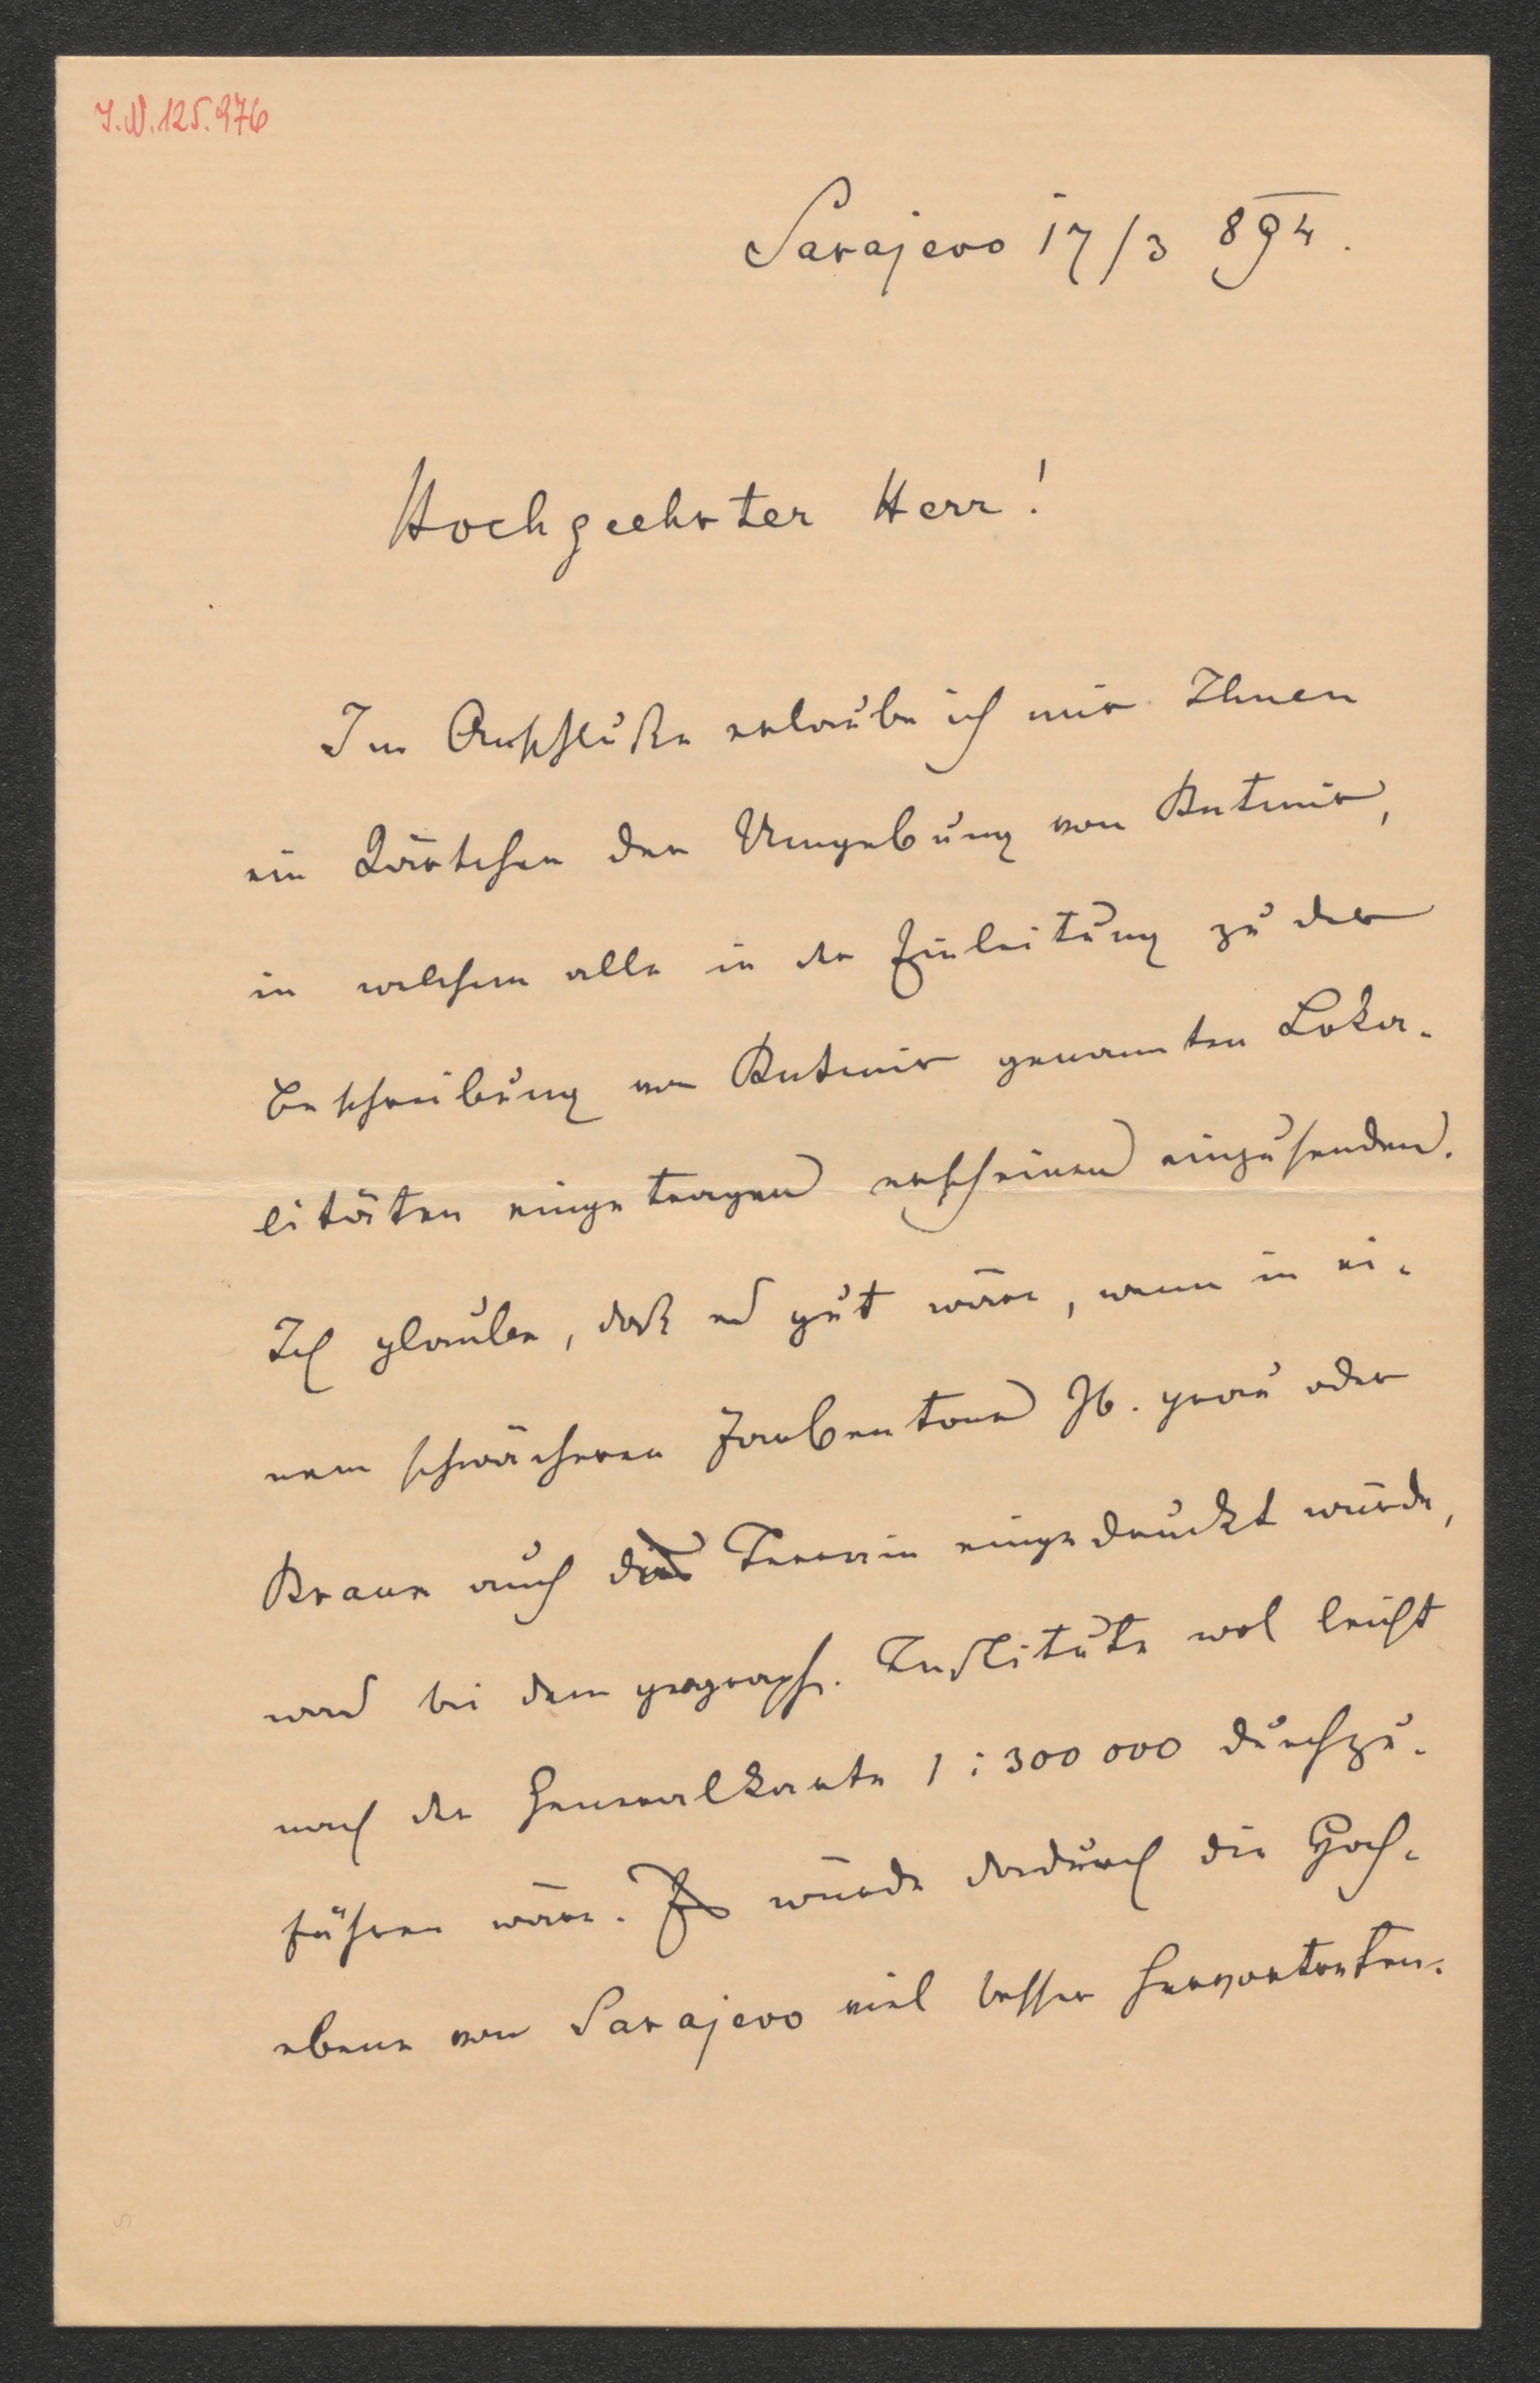 I.N. 125.976
Sarajevo 17/3 894.
Hochgeehrter Herr!
Im Anschluße erlaube ich mir Ihnen
ein Kärtchen der Umgebung von Butmir,
in welchem alle in der Einleitung zu der
Beschreibung von Butmir genannten Loka-
litäten eingetragen erscheinen einzusenden.
Ich glaube, daß es gut wäre, wenn in ei-
nem schwächeren Farbentone zb. grau oder
Braun auch das Terrain eingedruckt würde,
was bei dem geograph. Institute wol leicht
nach der Generalkarte 1:300 000 durchzu-
führen wäre. Es würde dadurch die Hoch-
ebene von Sarajevo viel besser hervortreten.